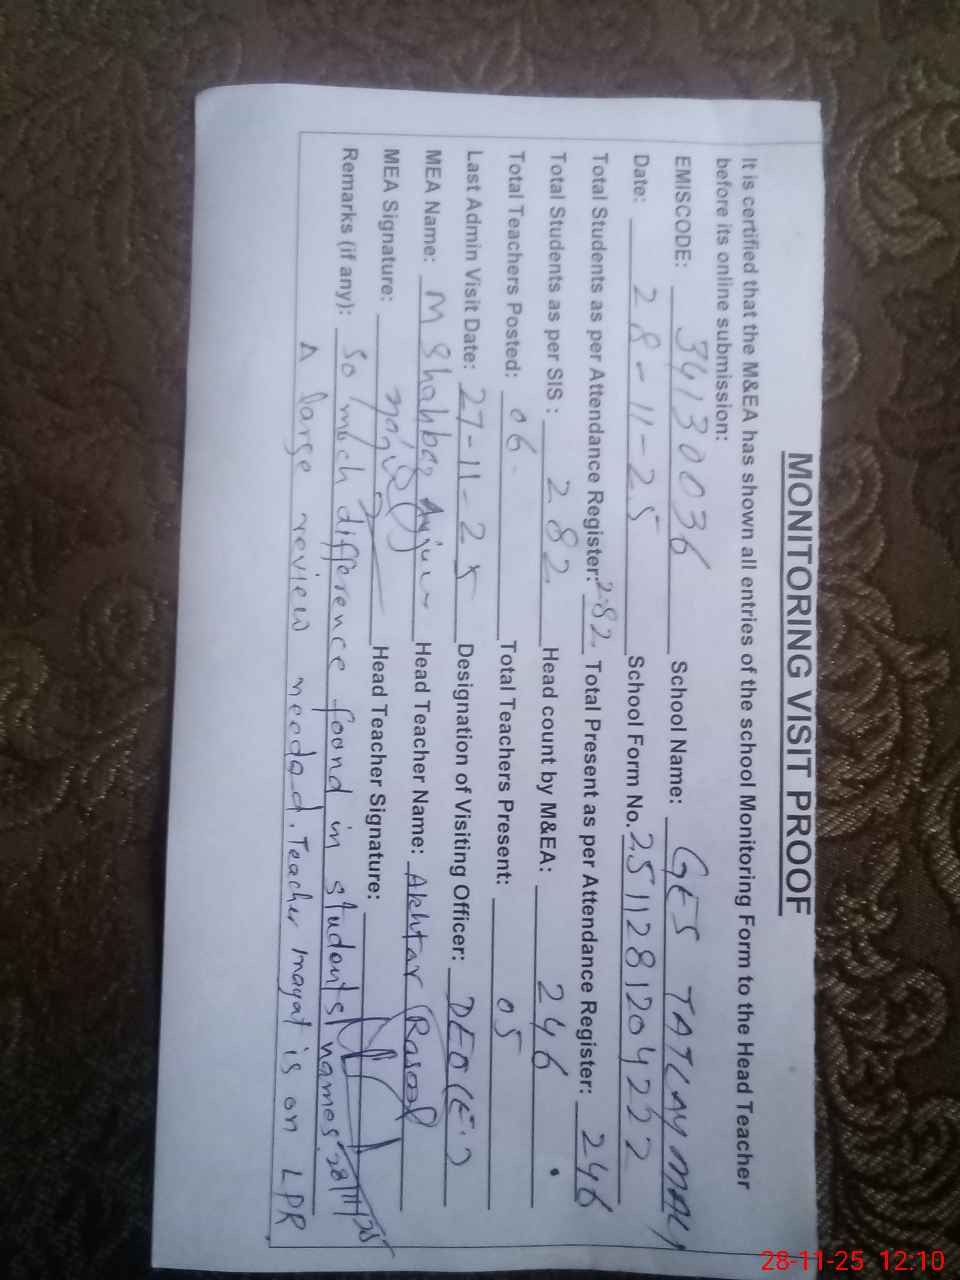 MONITORING VISIT PROOF
It is certified that the M&EA has shown all entries of the school Monitoring Form to the Head Teacher
before its online submission:
EMISCODE: 34130036 School Name: GES TATLAY MALI
Date: 28-11-25 School Form No. 251128120422
Total Students as per Attendance Register: 282 Total Present as per Attendance Register: 246
Total Students as per SIS : 282 Head count by M&EA: 246
Total Teachers Posted: 06 Total Teachers Present: 05
Last Admin Visit Date: 27-11-25 Designation of Visiting Officer: DEO (E.)
MEA Name: M Shahbaz Anjum Head Teacher Name: Akhtar Rasool
MEA Signature: Head Teacher Signature:
28/11/25
Remarks (if any): So much difference foond in students' names.
A large review needed. Teacher Inayat is on LPR
28-11-25 12:10